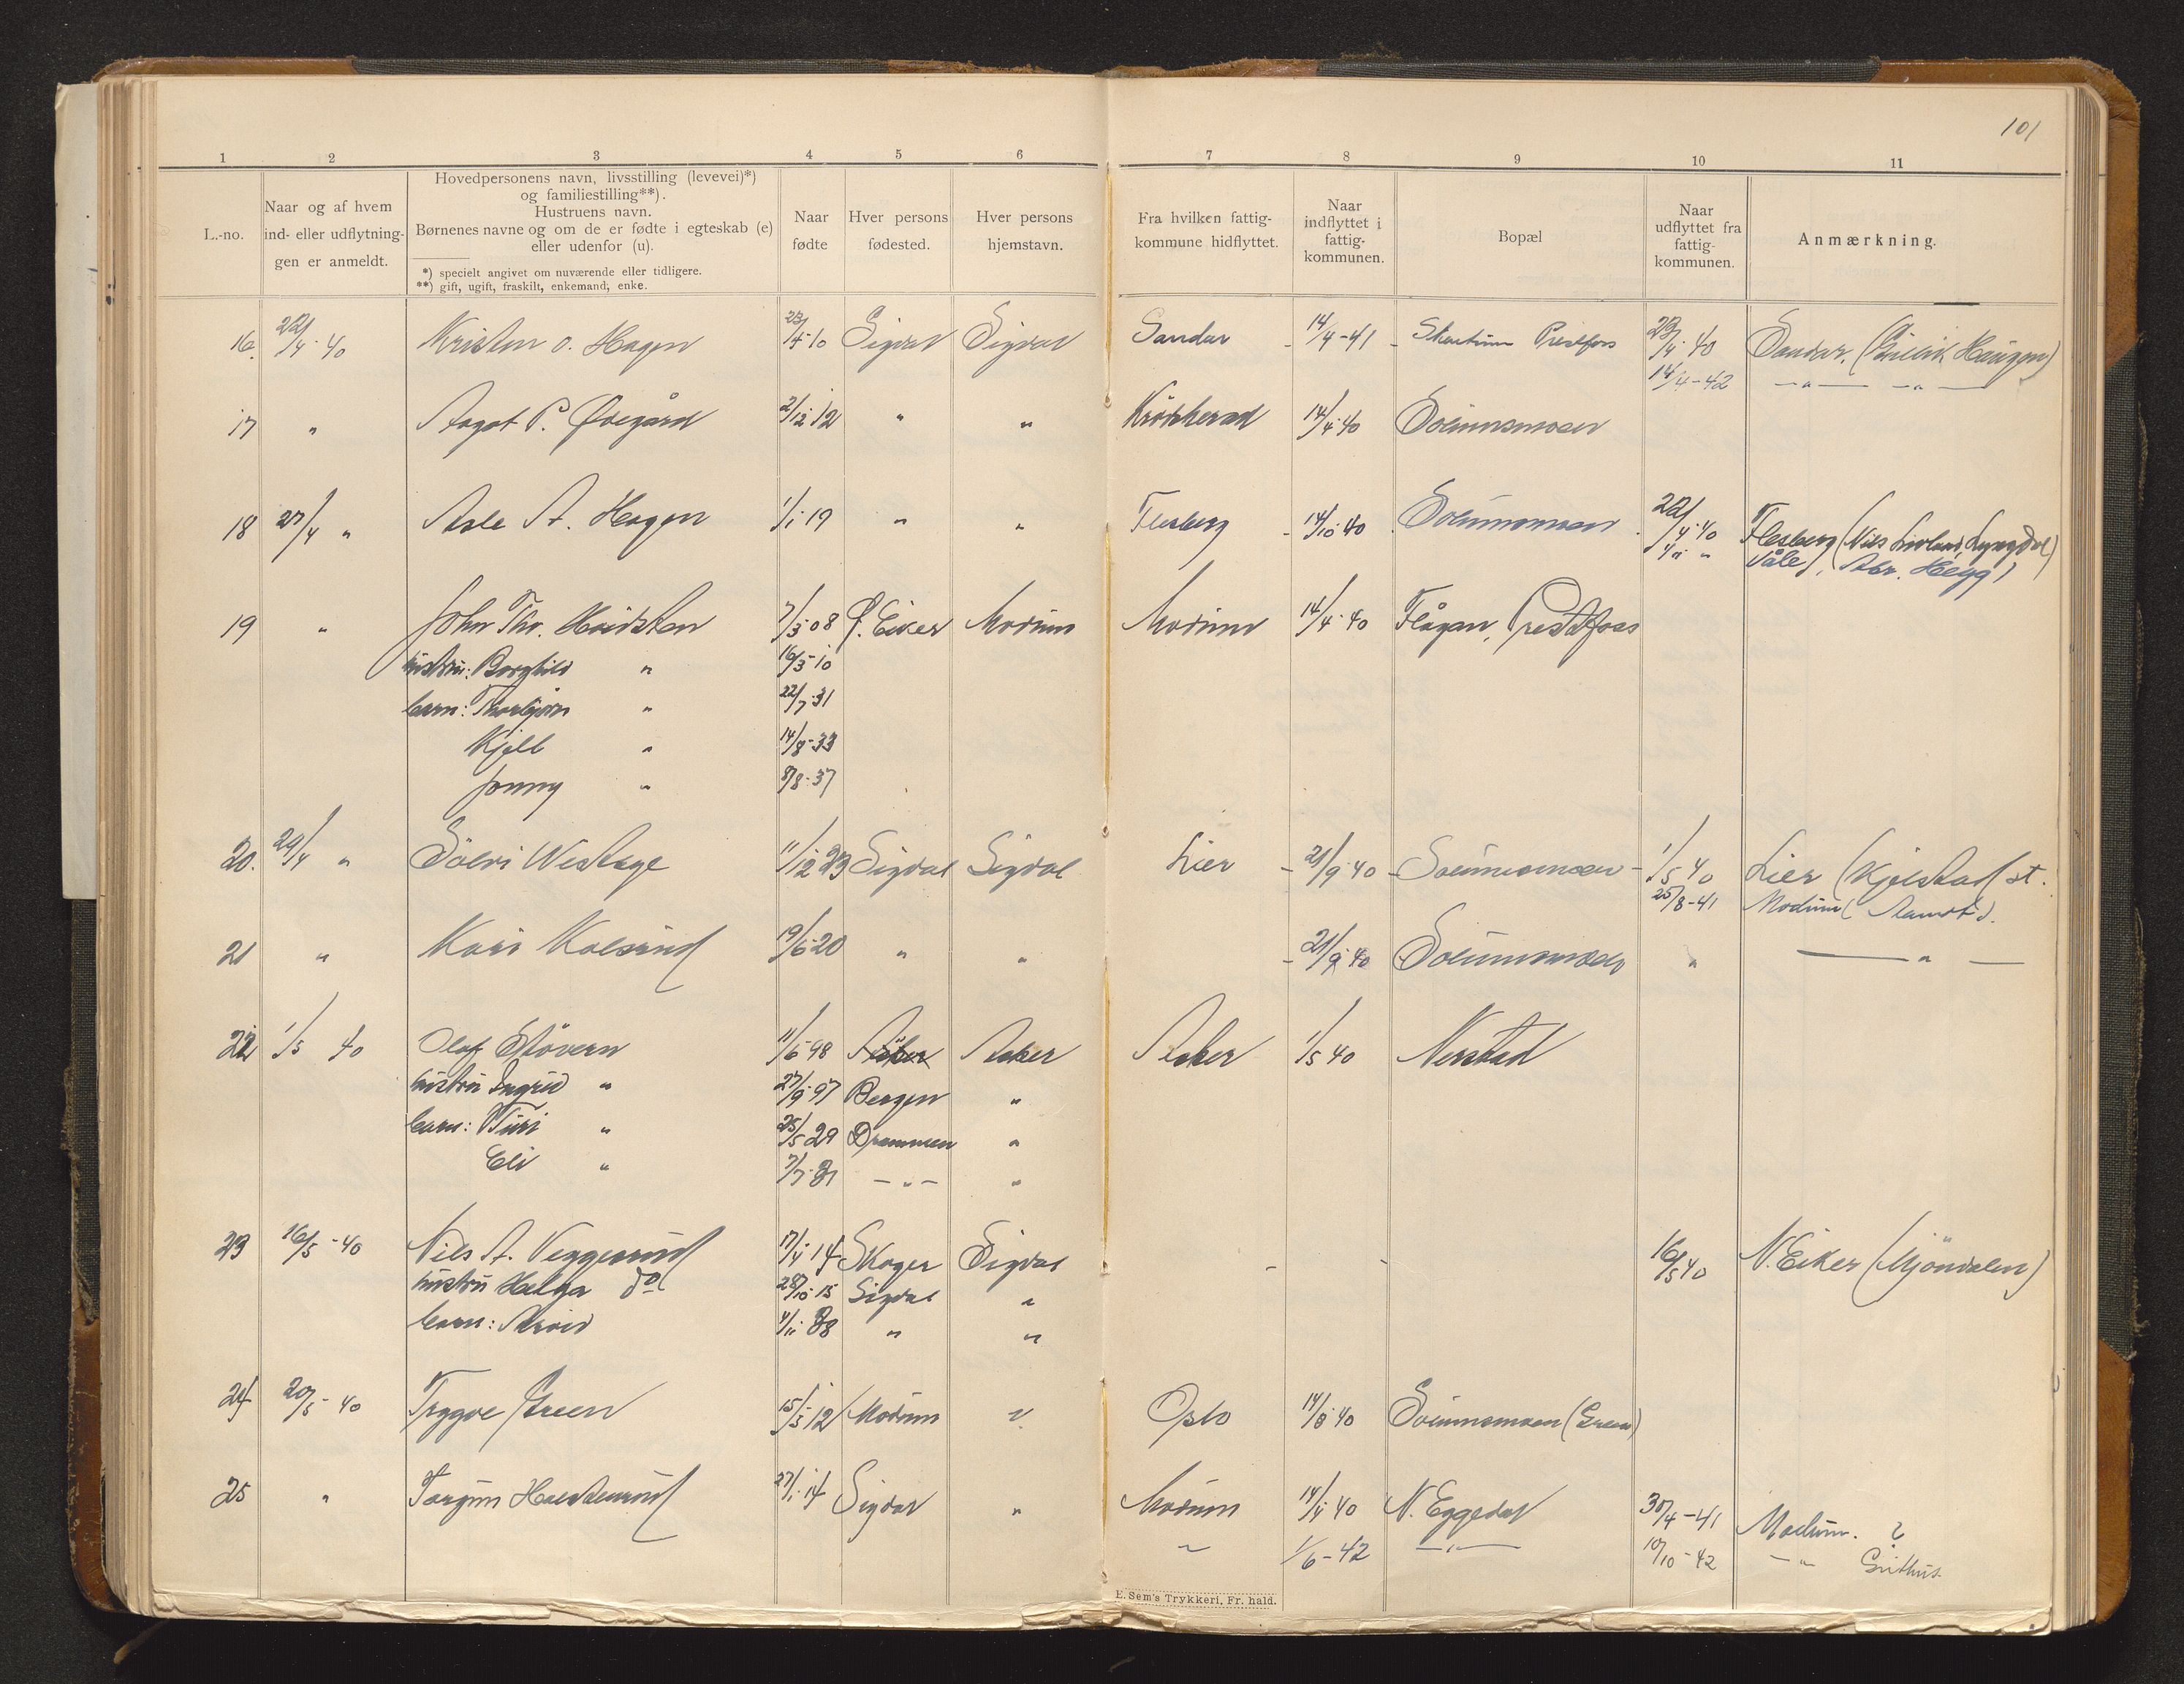 101
1 2 3 4 5 6 7 8 9 10 11
L.-no.
Naar og af hvem
ind- eller udflytnin-
gen er anmeldt.
Hovedpersonens navn, livsstilling (levevei)*)
og familiestilling**).
Hustruens navn.
Børnenes navne og om de er fødte i egteskab (e)
eller udenfor (u).
*) specielt angivet om nuværende eller tidligere.
**) gift, ugift, fraskilt, enkemand, enke.
Naar
fødte
Hver persons
fødested.
Hver persons
hjemstavn.
Fra hvilken fattig-
kommune hidflyttet.
Naar
indflyttet i
fattig-
kommunen.
Bopæl
Naar
udflyttet fra
fattig-
kommunen.
Anmærkning.
16. 22/4-40 Kristen O. Hagen 23/4-10 Sigdal Sigdal Sandar - 14/4-41 - Prestfoss 23/4-40 Sandar. (Haugen)
14/4-42 -"- -"-
17 " Aagot P. Øvegård 2/12-12 " " Krödsherad 14/4-40 Solumsmoen
18 27/4 " Asle A. Hagen 1/1 19 " " Flesberg - 14/10-40 Solumsmoen - 22/4-40 Flesberg (Nils Lyngdal)
"
19 " John Thr. 7/3-08 Ø. Eiker Modum Modum 14/4-40 Flågan, Prestfoss
hustru: Borghild " 16/3-10
barn: Thorbjörn " 22/7-31
Kjell " 14/8-33
Jonny " 8/8-37
20. 29/4 " Sölvi Westage 11/12 23 Sigdal Sigdal Lier - 21/9-40 - Solumsmoen - 1/5 40 Lier (Kjelstad st.
25/8-41 Modum (Aamot).
21 " Kari Kolsrud 19/6-20 " " - 21/9-40 Solumsmoen " -"-
22 1/5 40 Olaf Støvern 11/6-98 Asker Asker 1/5 40 Nerstad
hustru Ingrid " 27/9-97 Bergen "
barn: Turi " 25/5 29 Drammen "
Eli " 7/7-31 -"- "
23 16/5-40 Nils A. Veggerud 17/4-14 Skoger Sigdal - - 16/5 40 N. Eiker (Mjöndalen)
hustru Helga do 28/10-15 Sigdal "
barn: Arvid 4/11-38 " "
24 20/5-40 Trygve Green 15/5-12 Modum " Oslo 14/8-40 Solumsmoen (Green)
25 " Torgun 27/1-14 Sigdal " Modum 14/4 40 N. Eggedal 30/4-41 Modum. ?
" 1/6-42 -"- 10/10-42 -"- Geithus
E. Sem's Trykkeri, Fr. hald.